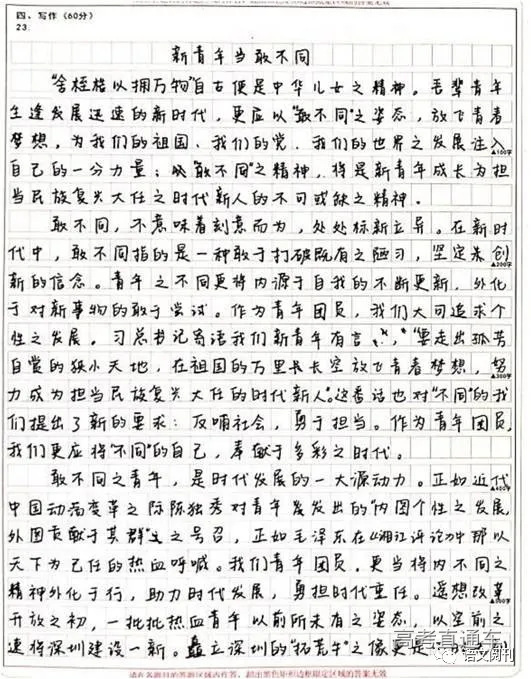 四、写作（60分）
23.
新青年当敢不同
“舍桎梏以拥万物”自古便是中华儿女之精神。吾辈青年
生逢发展迅速的新时代，更应以“敢不同”之姿态，放飞青春
梦想，为我们的祖国、我们的党、我们的世界之发展注入
▲100字
自己的一分力量；以“敢不同”之精神，将是新青年成长为担
当民族复兴大任之时代新人的不可或缺之精神．
敢不同，不意味着刻意而为，处处标新立异。在新时
代中，敢不同指的是一种敢于打破既有之陋习，坚定求创
▲200字
新的信念。青年之不同更将内源于自我的不断更新，外化
于对新事物的敢于尝试。作为青年团员，我们大可追求个
性之发展。习总书记寄语我们新青年有言，“要走出孤芳
自赏的狭小天地，在祖国的万里长长空放飞青春梦想，努
▲300字
力成为担当民族复兴大任的时代新人。”这番话也对“不同”的我
们提出了新的要求：反哺社会，勇于担当。作为青年团员，
我们更应将“不同”的自己，奉献于多彩之时代。
敢不同之青年，是时代发展的一大源动力。正如近代
▲400字
中国动荡变革之际陈独秀对青年发发出的“内图个性之发展，
外图贡献于其群”之号召，正如毛泽东在《湘江评论》中那以
天下为己任的热血呼喊。我们青年团员，更当将内不同之
精神外化于行，助力时代发展，勇担时代重任。遥想改革
▲500字
开放之初，一批批热血青年以前所未有之姿态，以空前之
速将深圳建设一新。矗立深圳的“拓荒牛”之像更是
高考直通车
语文阅刊
请在各题目的答题区域内作答，超出黑色矩形边框限定区域的答案无效